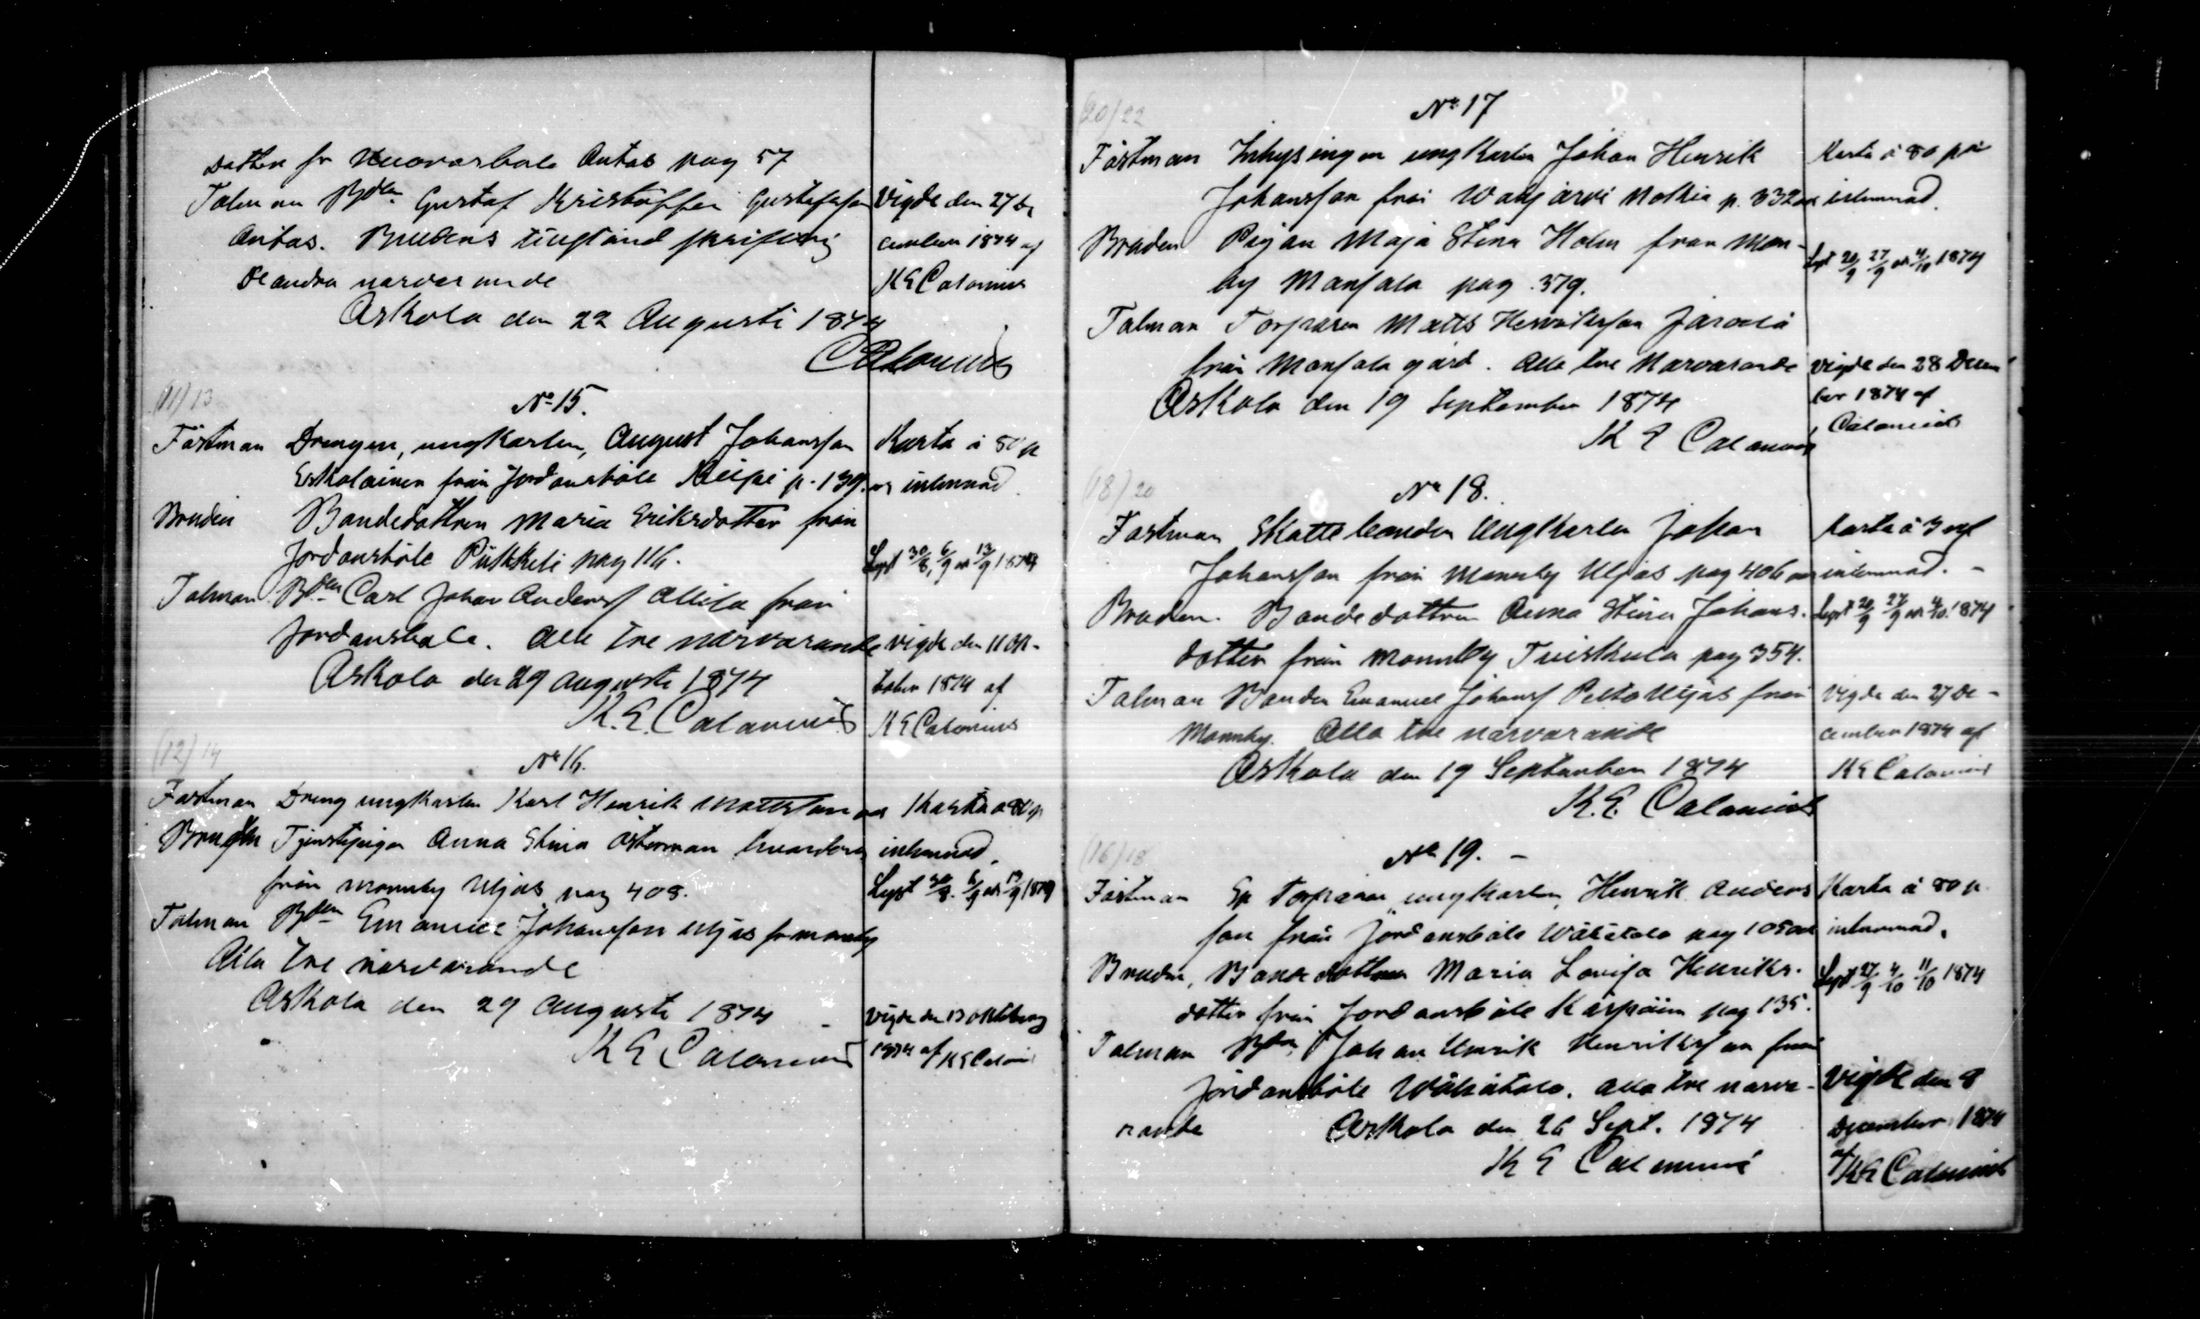 dotter fr Antas pag 57
Talman Bden Gustaf Kristoffer Gustafsson
Antas. Brudens
de andra närvarande
Askola den 22 Augusti 1874
Calonius
Vigde den 27 De
cember 1874 af
K E Calonius
(11) 13
No 15.
Fästman Drengen, ungkarlen, August Johansson
Eskolainen från Jordansböle Piispi p. 139. oc
Bruden Bondedottren Maria Eriksdotter från
Jordansböle Pukkila pag 116.
Talman Bden Carl Johan Andersf Allila från
Jordansböle. Alla tre närvarande
Askola den 29 augusti 1874
K. E. Calonius
Karta à 80 p
inlemnad.
Lyst 30/8, 6/9 och 13/9 1874
Vigde den 11 Ok-
tober 1874 af
K E Calonius
(12) 14
No 16.
Fästman Dreng ungkarlen Karl Henrik Mattsson och
Bruden Tjenstepigan Anna Stina Österman hvardera
från Monnby Uljas pag 408.
Talman Bden Emanuel Johansson Uljas fr Monnby
Alla tre närvarande
Askola den 29 augusti 1874
K E Calonius
Karta à 80 p
inlemnad.
Lyst 30/8. 6/9 och 13/9 1874
Vigde den 13 oktober
1874 af K E Calonius
(20) 22
No 17
Fästman Inhysingen ungkarlen Johan Henrik
Johansson från Wahijärvi Nokkia p. 332 och
Bruden Pigan Maja Stina Holm från Mon-
by Monsala pag. 379.
Talman Torparen Matts Henriksson Jarvelä
från Monsala gård. Alla tre Närvarande
Askola den 19 September 1874
K E Calonius
Karta à 80 på
inlemnad.
Lyst 20/9 27/9 och 4/10 1874
Vigde den 28 Decem
ber 1874 af
Calonius
(18) 20
No 18.
Fästman Skattebonden Ungkarlen Johan
Johansson från Monnby Uljas pag 406 och
Bruden. Bondedottren Anna Stina Johans-
dotter från Monnby Tuiskula pag 354.
Talman Bonden Emanuel Johansf Pelto Uljas från
Monnby. Alla tre närvarande
Askola den 19 September 1874
K. E. Calonius
Karta à 3
inlemnad. -
Lyst 20/9 27/9 och 4/10. 1874
Vigde den 27 De -
cember 1874 af
K E Calonius
(16) 18
No 19. -
Fästman Torparen ungkarlen, Henrik Anders
son från Jordansböle Wähätalo pag 105 och
Bruden, Bondedottren Maria Lovisa Henriks-
dotter från Jordansböle Karpain pag 135.
Talman Bden Johan Henrik Henriksson från
Jordansböle Wähätalo. Alla tre närva-
rande Askola den 26 Sept. 1874
K E Calonius
Karta à 80 p.
inlemnad.
Lyst 27/9 4/10 11/10 1874
Vigde den 8
December 1874
af K E Calonius